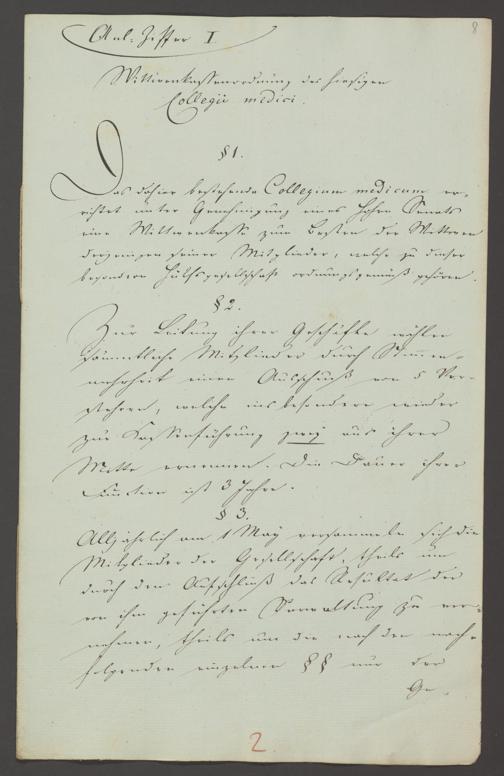 8
Anl: Ziffer I.
Wittwenkassenordnung des hiesigen
Collegii medici.
§ 1.
Das dahier bestehende Collegium medicum er-
richtet unter Genehmigung eines hohen Senats
eine Wittwenkasse zum Besten der Wittwen
derjenigen seiner Mitglieder, welche zu dieser
besondern Hülfsgesellschaft ordnungsgemäß gehören.
§ 2.
Zur Leitung ihrer Geschäfte wählen
sämmtliche Mitglieder durch Stimmen-
mehrheit einen Ausschuß von 5 Vor-
stehern, welche insbesondere wieder
zur Kassenführung zwey aus ihrer
Mitte ernennen. Die Dauer ihrer
Function ist 3 Jahre.
§ 3.
Alljährlich am 1 May versammeln sich die
Mitglieder der Gesellschaft, theils um
durch den Ausschuß das Resultat der
von ihm geführten Verwaltung zu ver-
nehmen, theils um die nach den nach-
folgenden einzelnen §§ nur der
Ge-
2